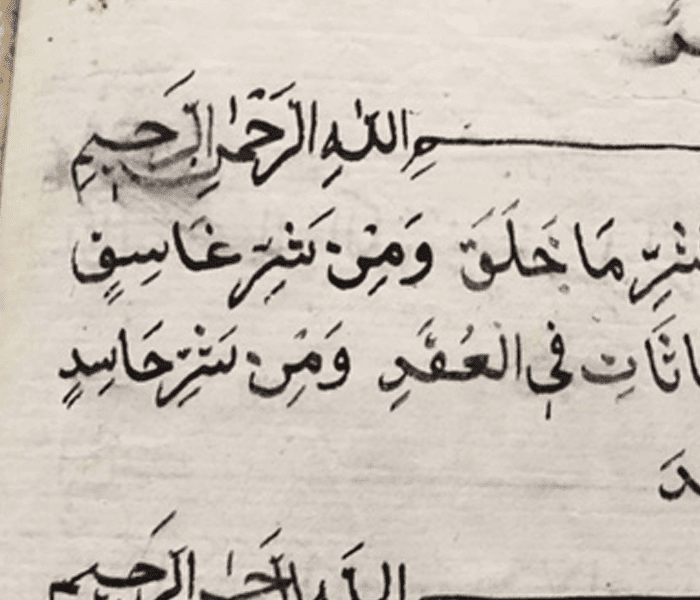 ـم اللّٰهِ الرَّحْمٰنِ الرَّحِيمِ
شَرِّ مَا خَلَقَ وَمِنْ شَرِّ غَاسِقٍ
اثَاتِ فِي الْعُقَدِ وَمِنْ شَرِّ حَاسِدٍ
اللّٰه الرَّحْمٰن الرَّحِيم